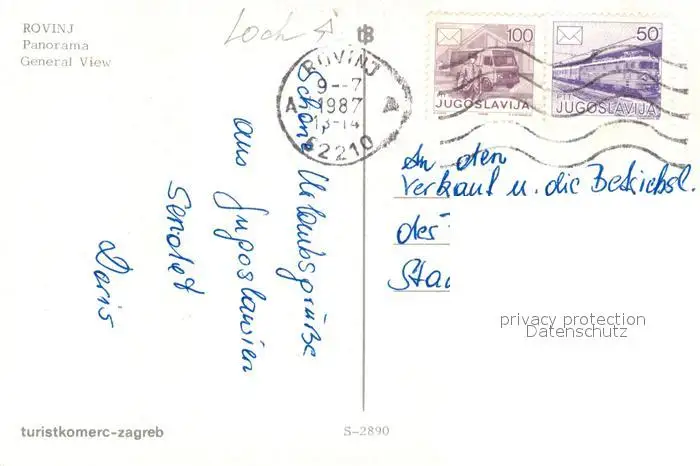 ROVINJ
Panorama
General View
Loch
ROVINJ
9--7
A 1987 a
13-14
52210
100
JUGOSLAVIJA
50
PTT
JUGOSLAVIJA
Schöne Urlaubsgrüße
aus Jugoslawien
Sendet
Doris
An den
Verkauf u. die
des
Sta
privacy protection
Datenschutz
turistkomerc-zagreb
S-2890